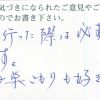 気づきになられたご意見やご
のでお書き下さい。
行った際は必
す。
巣ごもりも好き